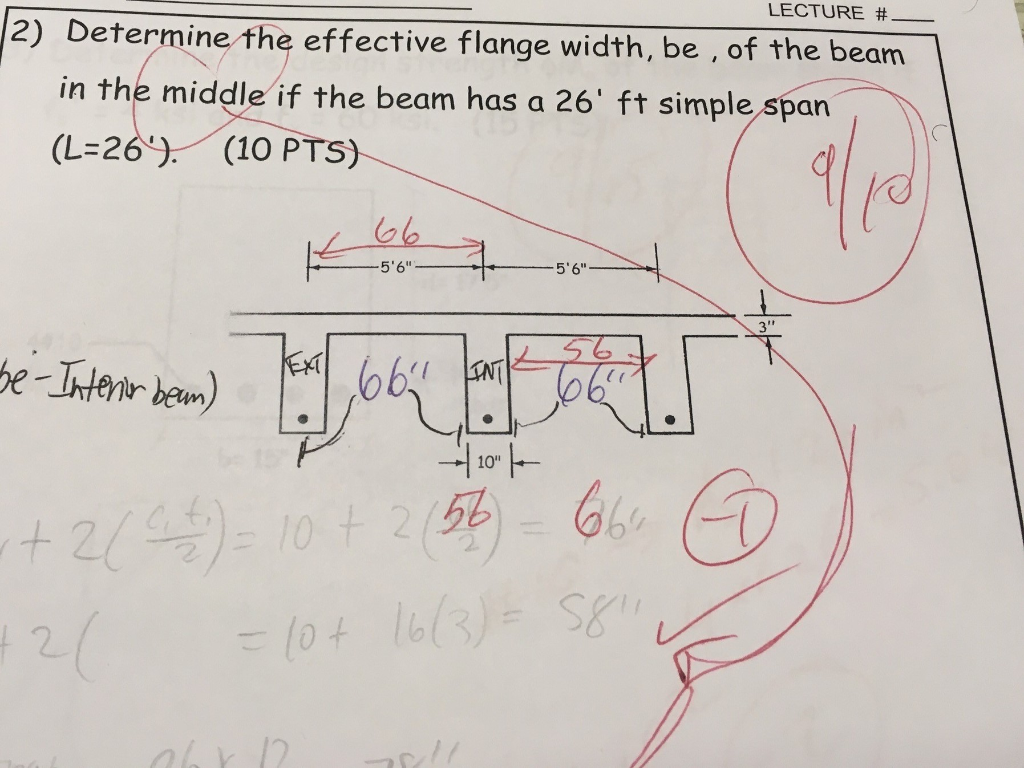 LECTURE #
2) Determine the effective flange width, be , of the beam
in the middle if the beam has a 26' ft simple span
(L=26'). (10 PTS)
9/10
66
5'6" 5'6"
3"
EXT 66" INT 56 66"
be - Interior beam)
10"
+ 2( /2) = 10 + 2(56/2) = 66" -1
+ 2( = 10 + 16(3) = 58"
26 x 12 78"